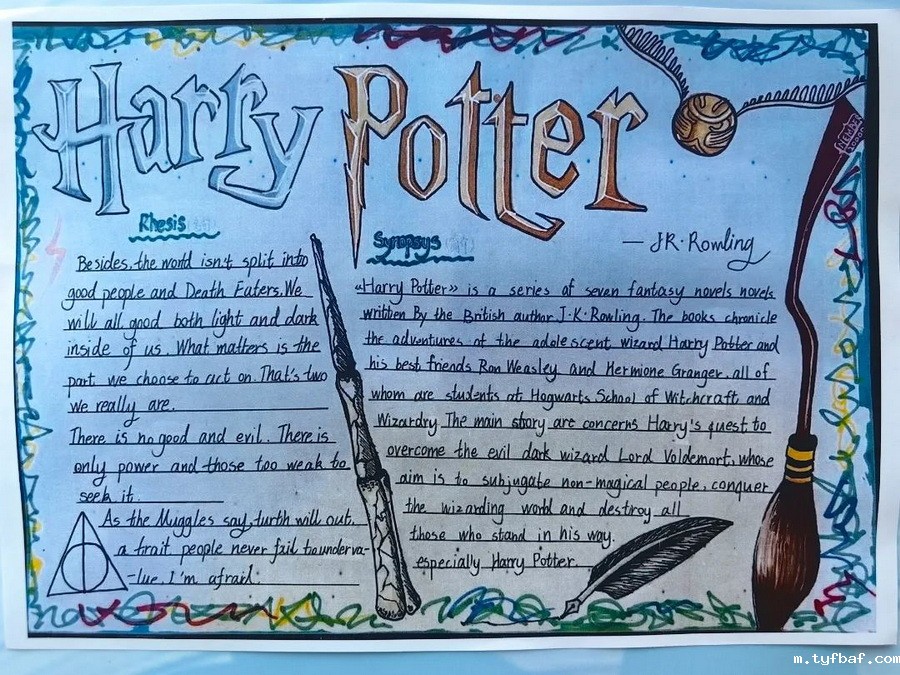 Harry Potter
— J.K.Rowling
Rhesis
Besides, the world isn't split into
good people and Death Eaters. We
will all good both light and dark
inside of us. What matters is the
part we choose to act on. That's two
we really are.
There is no good and evil. There is
only power and those too weak to
seek it.
As the Muggles say, turth will out.
a trait people never fail to underva-
-lue. I'm afraid.
Synopsys
«Harry Potter» is a series of seven fantasy novels novels
written By the British author J·K·Rowling. The books chronicle
the adventures of the adolescent wizard Harry Potter and
his best friends Ron Weasley and Hermione Granger, all of
whom are students at Hogwarts School of Witchcraft and
Wizardry. The main story are concerns Harry's quest to
overcome the evil dark wizard Lord Voldemort, whose
aim is to subjugate non-magical people, conquer
the wizarding world and destroy all
those who stand in his way.
especially Harry Potter.
m.tyfbaf.com